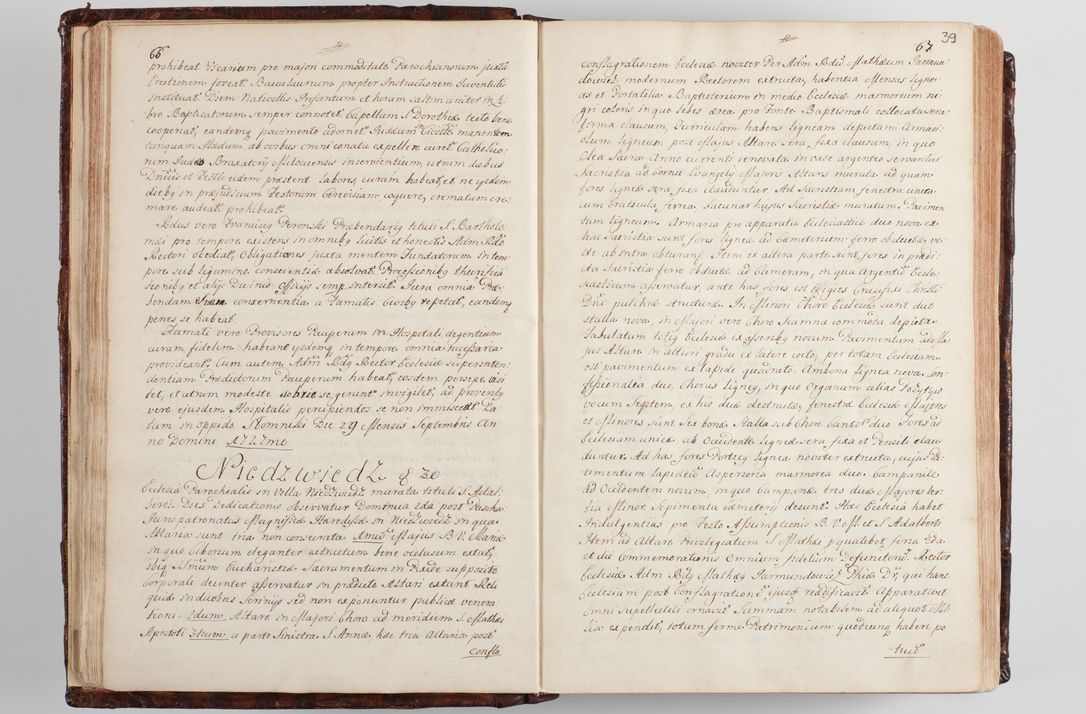 66
prohibeat Vicarium pro majori commoditate Parochianorum juxta
Erectionem foveat Baccalaureum propter Instructionem Juventutis
instituat. Diem Nativitatis Infantum et horam saltim circiter in Li-
bro Baptisatorum semper connotet. Capellam S. Dorotheæ tecto bene
cooperiat, eandemq pavimento adornet. Judæum manentem
tanquam Hædum ab ovibus omni conatu expellere curet. Catholico-
rum Judæo Braxatorij inservientium, ut nim diebus
Dnicis et Festo eidem præstent labores, curam habeat, et ne ijsdem
dieb in Festorum Cerevisiam coquere, crematum cre-
mare audeat prohibeat.
Pdus vero Franciscq Peronski Præbendariq tituli S. Bartholo-
mæi pro tempore existens in omnibq licitis et honestis Adm Rdo
Rectori obediat, Obligationes juxta mentem Fundatorum in tem-
pore sub ligamine conscientiæ absolvat. Processionibq
sionibq et alijs Divinis Officijs semp intersit. Jura omnia Præ-
bendam suam concernentia a Famatis Civibq repetat, eandemq
penes se habeat.
Famati vero Provisores Pauperum in Hospitali degentium
curam fidelem habeant ijsdemq in tempore omnia necessaria
provideant. Cum autem Adm Rdq Rector Ecclesiæ superinten-
dentiam Prædictorum Pauperum habeat, eosdem persæpe visi-
tet, et utrum modeste sobrie se gerunt invigilet, ad proventq
vero ejusdem Hospitalis percipiendos se non immisceat. Da-
tum in oppido Słomniki Die 29 Mensis Septembris An-
no Domini 1727mo
Niedzwiedz § 30
Ecclesia Parochialis in Villa Niedzwiedz murata tituli S. Adal-
berti. Dies Dedicationis observatur Dominica 2da post Pascha.
Juris patronatus Magnificæ Hæredissæ in Niedzwiedz in qua
Altaria sunt tria non consecrata. 1mum Majus B.V. Mariæ
in quo Ciborium eleganter extructum bene occlusum extat,
ibiq Smum Eucharistiæ Sacramentum in Pixide supposito
Corporali decenter asservatur in prædicto Altari extant Reli-
quiæ in duobus scrinijs sed non exponuntur publicæ venera-
tioni. 2dum Altare in Majori Choro ad meridiem S. Mathiæ
Apostoli 3tium a parte Sinistra S. Annæ, hæc tria Altaria post
Confla
67
39
conflagrationem Ecclesiæ noviter Per Adm Rdum Mathæum Jarmun-
dowicz modernum Rectorem extructa, habentia Mensas ligne-
as et Portatilia. Baptisterium in medio Ecclesiæ marmoreum ni-
gri coloris in quo lebes ærea pro Fonte Baptismali collocatus in
forma clausum, Curriculum habens ligneam depictam. Armari-
olum ligneum post Majus Altare sera fixa clausum, in quo
Olea Sacra Anno currenti renovata in vase argenteo servantur.
Sacristia ad cornu Evangely Majoris Altaris murata ad quam
fores ligneæ sera fixa clauduntur. Ad Sacristiam fenestra unica
cum Craticula ferrea, Lacunar hujus Sacristiæ muratum. Pavimen-
tum ligneum. Armaria pro apparatu Ecclesiastico duo nova ex
hac Sacristia sunt fores ligneæ ad Cæmeterium ferro obductæ ve-
cte ab intra obturant. Item ex altera parte sunt fores in prædi-
cta Sacristia ferro obductæ ad Cameram, in qua Argentum Eccle-
siasticum asservatur, ante has fores est Effigies Crucifixi Christi
Dni pulchræ structuræ. In Minori Choro Ecclesiæ sunt duo
stalla nova, in Majori vero Choro Scamna commoda depicta.
Tabulatum totiq Ecclesiæ ex asseribq novum. Pavimentum ad Ma-
jus Altare in altiori gradu ex latere cocto, per totam Ecclesiam
est pavimentum ex lapide quadrato. Ambona lignea nova, con-
fessionalia duo, Chorus ligneq, in quo Organum alias Pozytyw
vocum Septem, ex his duæ destructæ, fenestræ Ecclesiæ Majores
et Minores sunt sex bonæ. Stalla sub choro cantor duo. Fores ad
Ecclesiam unicæ ab Occidente ligneæ sera fixa et Pensili clau-
duntur. Ad has fores Porticq lignea noviter extructa, cujus Pa-
vimentum lapideum Aspersoria marmorea duo. Campanile
ad Occidentem novum, in quo Campanæ tres duæ Majores ter-
tia Minor. Sepimenta Cæmeterij desunt. Hæc Ecclesia habet
Indulgentias pro Festo Assumptionis B.V.M. et S. Adalberti
Item ad Altare Privilegiatum S. Mathiæ p qualibet feria 2da
et die Commemorationis Omnium fidelium Defunctoru. Rector
Ecclesiæ Adm Rdq Mathæq Jarmundowicz Phiæ Dr, qui hanc
Ecclesiam post Conflagrationem ejusd readificavit. Apparatu et
omni supellectili ornavit Summam notabilem ad aliquot Mil-
lia expendit, totum ferme Patrimonium quodcunq habere po-
-tuit